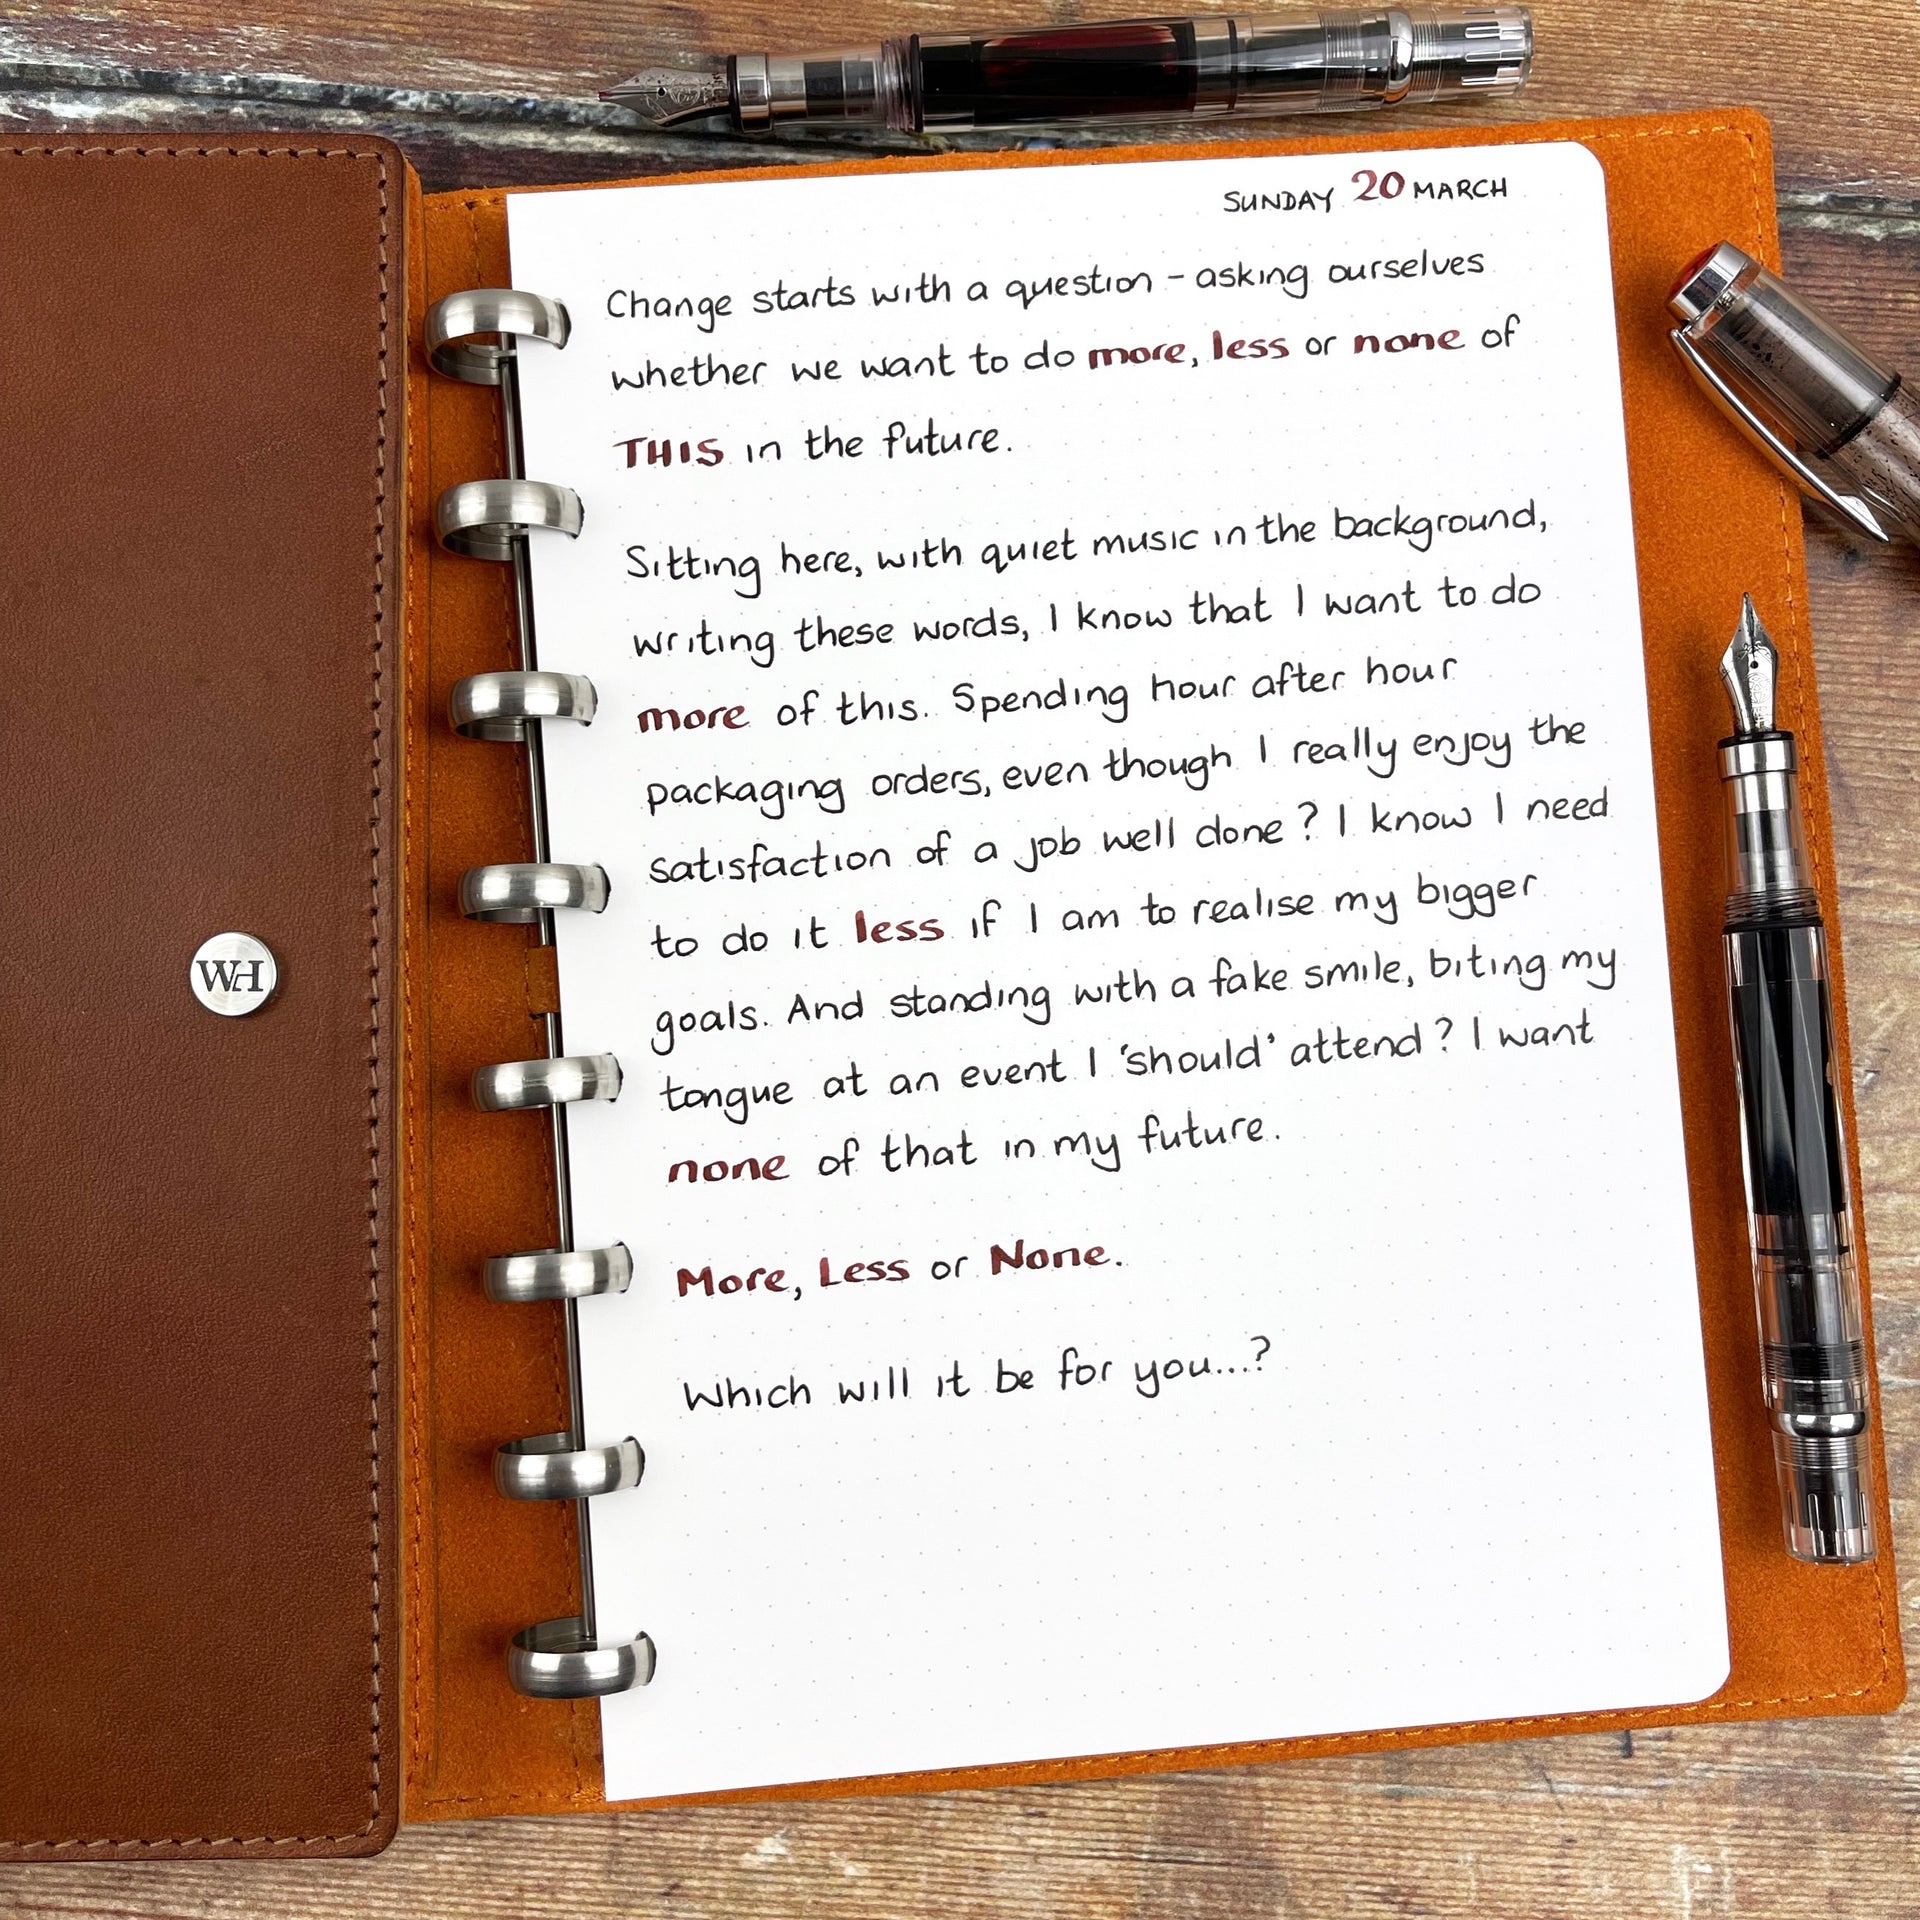 SUNDAY 20 MARCH
Change starts with a question – asking ourselves
whether we want to do more, less or none of
THIS in the future.
Sitting here, with quiet music in the background,
writing these words, I know that I want to do
more of this. Spending hour after hour
packaging orders, even though I really enjoy the
satisfaction of a job well done? I know I need
to do it less if I am to realise my bigger
goals. And standing with a fake smile, biting my
tongue at an event I 'should' attend? I want
none of that in my future.
More, Less or None.
Which will it be for you...?
WH